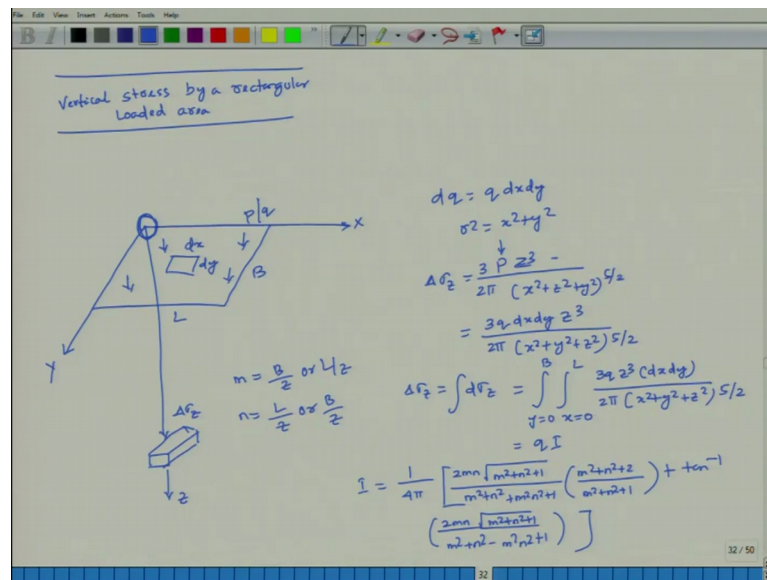 File Edit View Insert Actions Tools Help
B I
Vertical stress by a rectangular
Loaded area
P/q
X
dx
dy
B
L
Y
Δσz
z
m = B/z or L/z
n = L/z or B/z
dq = q dxdy
r2 = x²+y²
Δσz = 3 P z3 / 2π (x²+z²+y²)5/2
= 3q dxdy z3 / 2π (x²+y²+z²)5/2
Δσz = ∫dσz = ∫ y=0 B ∫ x=0 L 3q z3 (dxdy) / 2π (x²+y²+z²)5/2
= q I
I = 1/4π [ 2mn √m²+n²+1 / m²+n²+m²n²+1 ( m²+n²+2 / m²+n²+1 ) + tan⁻¹
( 2mn √m²+n²+1 / m²+n²-m²n²+1 ) ]
32 / 50
32